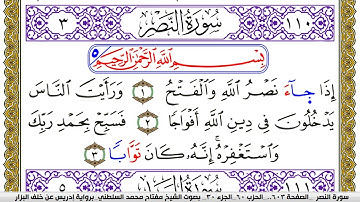 ١١٠ سُورَةُ النَّصْرِ ٣
بِسْمِ اللَّهِ الرَّحْمَٰنِ الرَّحِيمِ ٥
إِذَا جَآءَ نَصْرُ اللَّهِ وَالْفَتْحُ ١ وَرَأَيْتَ النَّاسَ
يَدْخُلُونَ فِي دِينِ اللَّهِ أَفْوَاجًا ٢ فَسَبِّحْ بِحَمْدِ رَبِّكَ
وَاسْتَغْفِرْهُ إِنَّهُ كَانَ تَوَّابًا ٣
١١١ ٥
سورة النصر _الصفحة ٦٠٣.. الحزب ٦٠ .الجزء ٣٠ _بصوت الشيخ مفتاح محمد السلطني_برواية إدريس عن خلف البزار